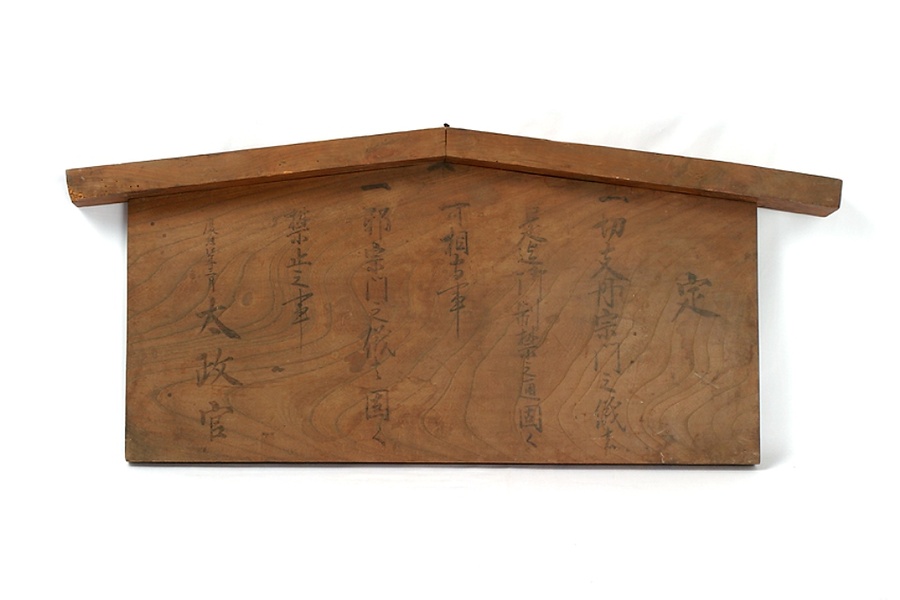 定
一切支丹宗門之儀者
是迄御制禁之通固く
可相守事
一邪宗門之儀者固く
禁止之事
慶應四年三月 太政官